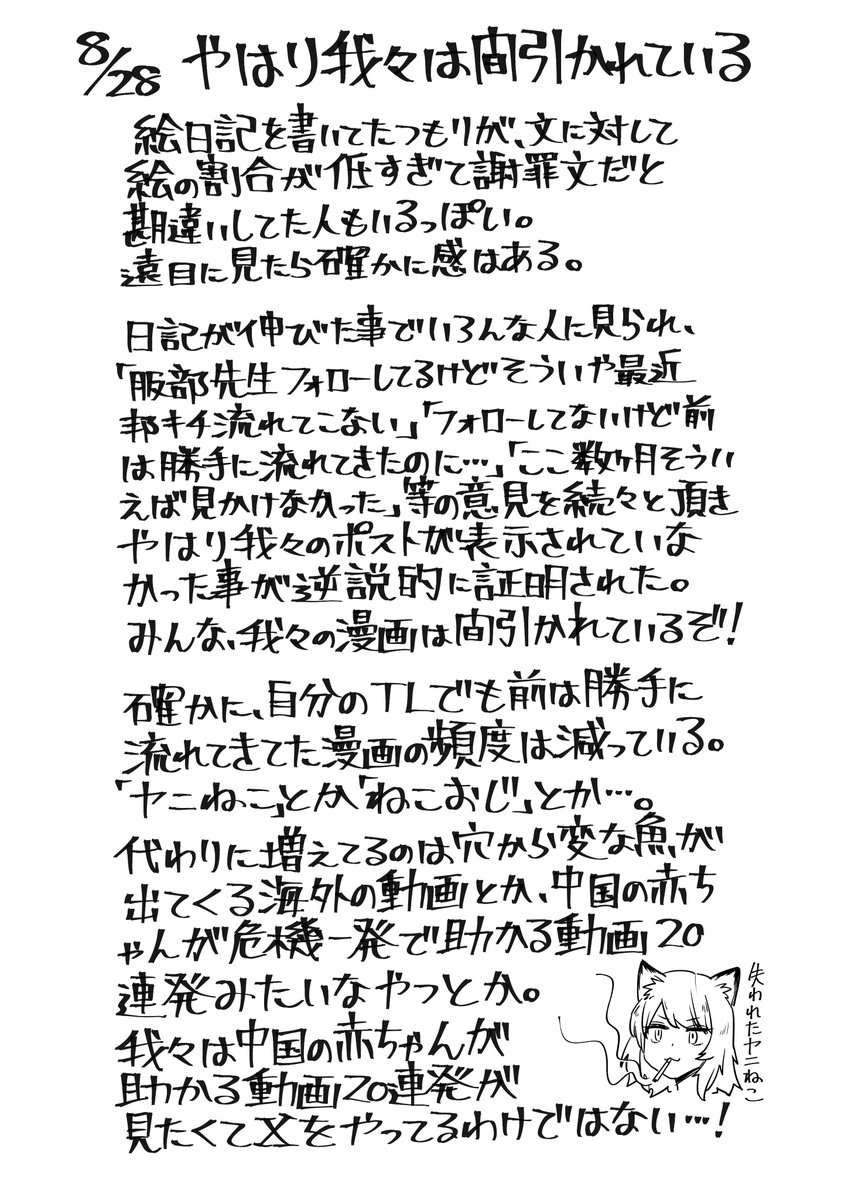 8/28 やはり我々は間引かれている
絵日記を書いてたつもりが、文に対して
絵の割合が低すぎて謝罪文だと
勘違いしてた人もいるっぽい。
遠目に見たら確かに感はある。
日記が伸びた事でいろんな人に見られ、
「服部先生フォローしてるけどそういや最近
邦キチ流れてこない」「フォローしてないけど前
は勝手に流れてきたのに…」「ここ数ヶ月そうい
えば見かけなかった」等の意見を続々と頂き
やはり我々のポストが表示されていな
かった事が逆説的に証明された。
みんな、我々の漫画は間引かれているぞ!
確かに、自分のTLでも前は勝手に
流れてきてた漫画の頻度は減っている。
「ヤニねこ」とか「ねこおじ」とか…。
代わりに増えてるのは穴から変な魚が
出てくる海外の動画とか、中国の赤ち
ゃんが危機一発で助かる動画20
連発みたいなやつとか。
我々は中国の赤ちゃんが
助かる動画20連発が
見たくてXをやってるわけではない…!
失われたヤニねこ